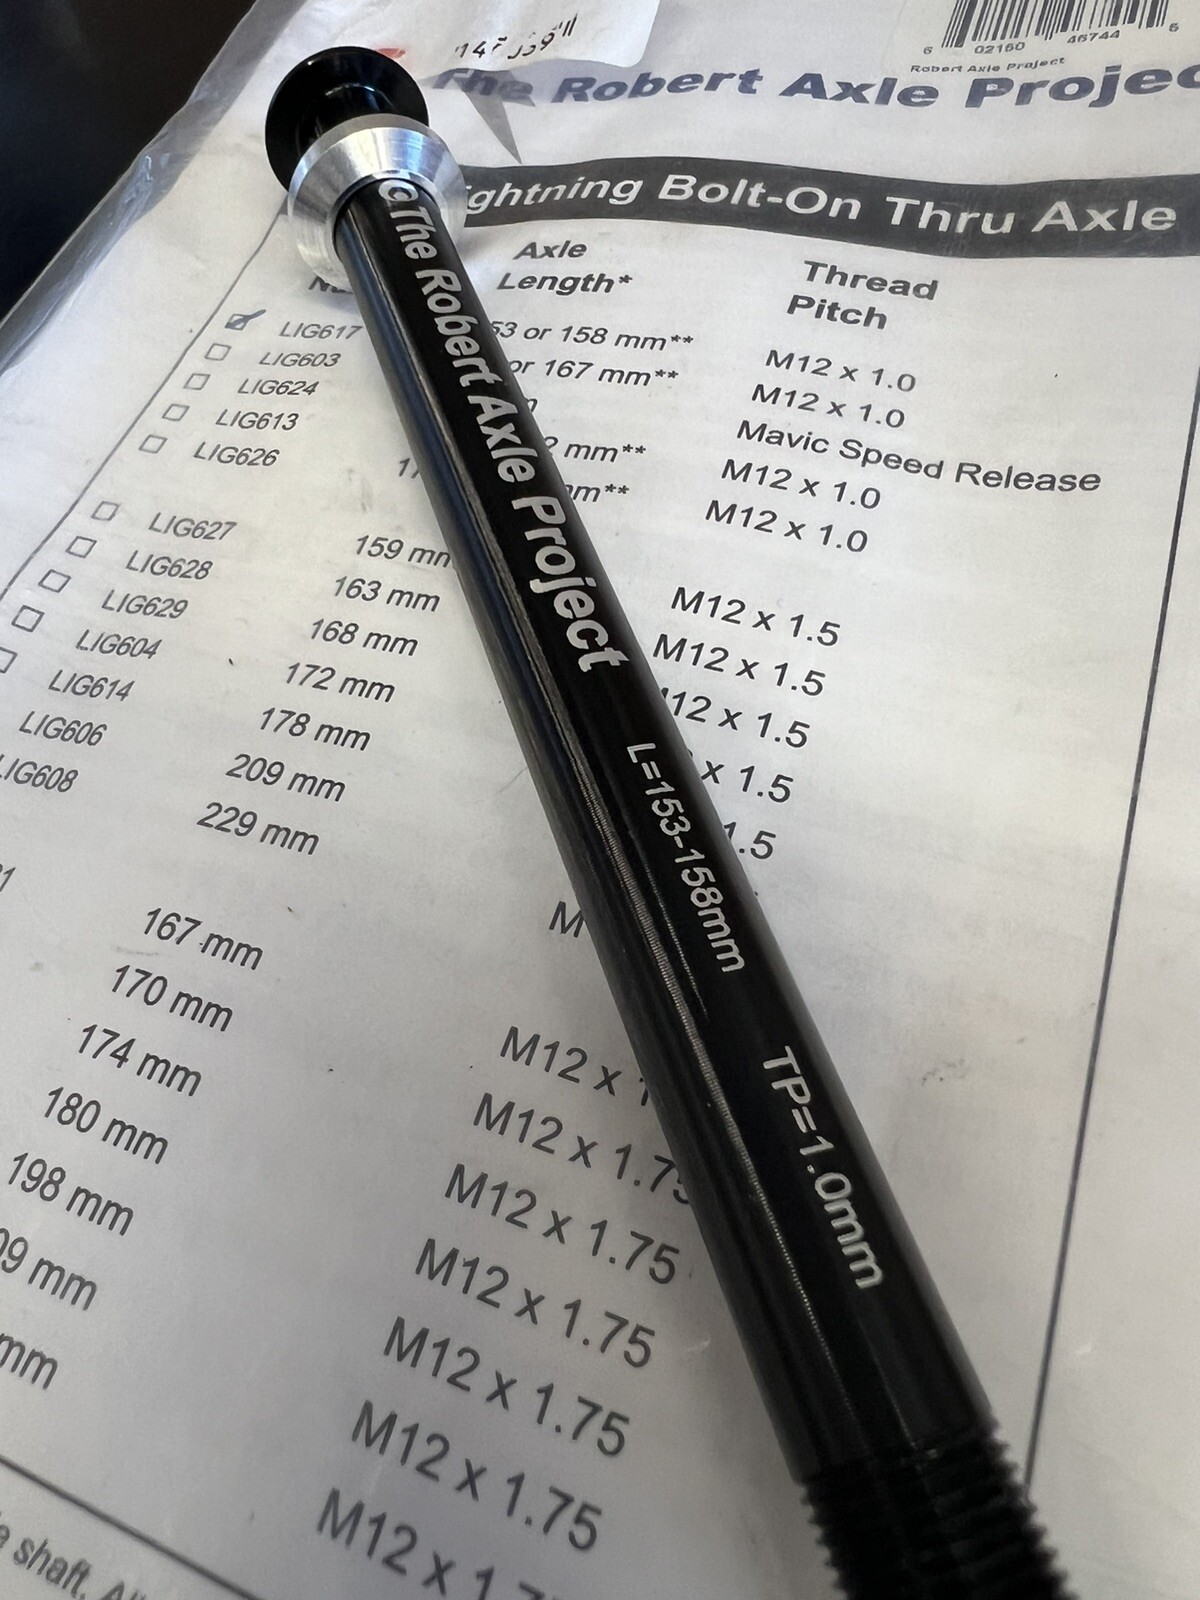 6 02160 46744 5
Robert Axle Project
The Robert Axle Projec
ightning Bolt-On Thru Axle
Axle
Length*
Thread
Pitch
LIG617 53 or 158 mm** M12 x 1.0
LIG603 or 167 mm** M12 x 1.0
LIG624 Mavic Speed Release
LIG613 2 mm** M12 x 1.0
LIG626 mm** M12 x 1.0
LIG627 159 mm M12 x 1.5
LIG628 163 mm M12 x 1.5
LIG629 168 mm 12 x 1.5
LIG604 172 mm x 1.5
LIG614 178 mm 1.5
LIG606 209 mm
LIG608 229 mm M
167 mm M12 x 1
170 mm M12 x 1.75
174 mm M12 x 1.75
180 mm M12 x 1.75
198 mm M12 x 1.75
09 mm M12 x 1.75
mm M12 x 1.7
shaft. Al
©The Robert Axle Project
L=153-158mm
TP=1.0mm